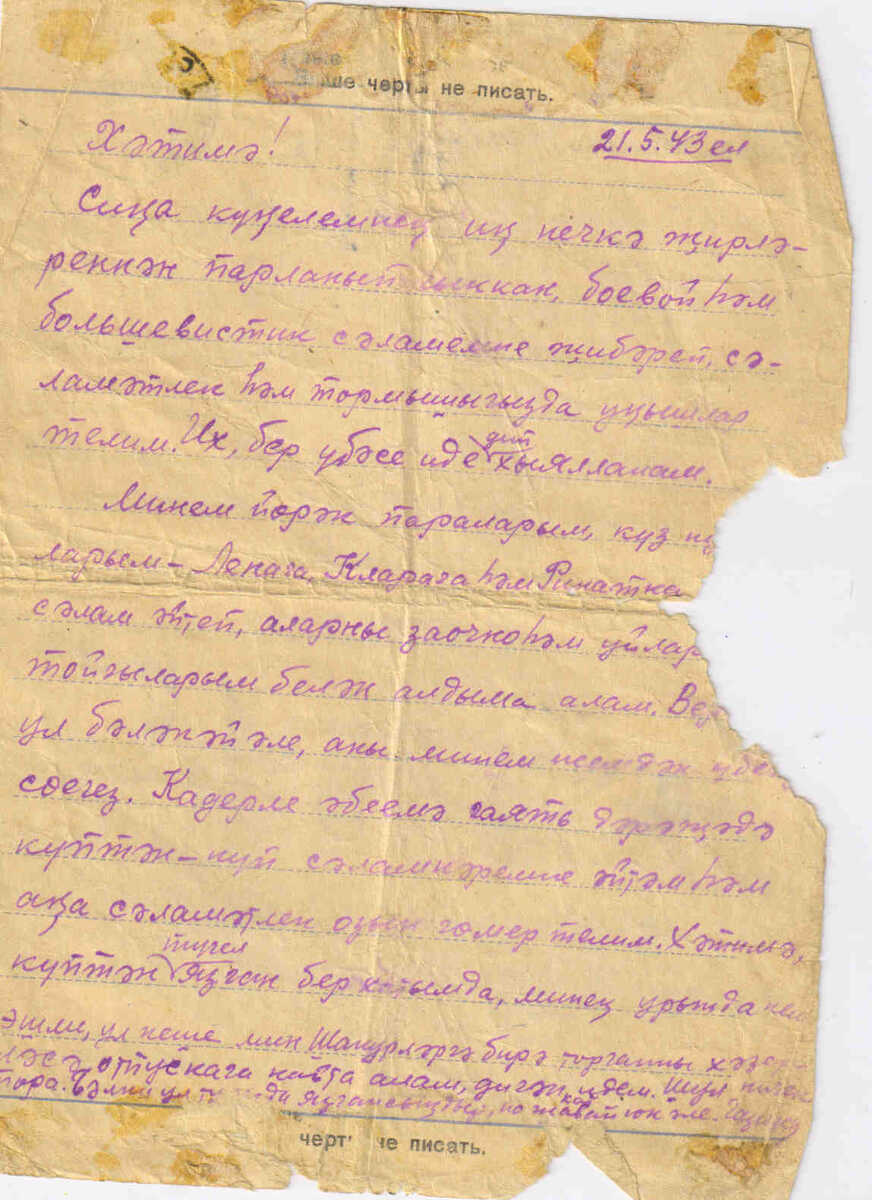 ше черты не писать.
21.5.43 ел
Хәтимә!
Сиңа күңелемнең иң нечкә җирлә-
реннән парланып чыккан, боевой һәм
большевистик сәламемне җибәреп, сә-
ламәтлек һәм тормышыгызда уңышлар
телим. Их, бер үбәсе иде дип хыялланам.
Минем йөрәк параларым, күз
ларым – Ленага, Кларага һәм Ринатка
сәлам әйтеп, аларны заочно һәм уйлар
тойгыларым белән алдыма алам.
ул бәләкәй әле, аны минем исемдән
сөегез. Кадерле әбеемә гаять дәрәҗәдә
күптән-күп сәламнәремне әйтәм һәм
аңа сәламәтлек озын гомер телим. Хәтимә,
күптән түгел язган бер хатымда, минең урында кем
эшли, ул кеше мин Шапурләргә бирә торганны
отпускага кайта алам, дигән идем. Шул
тора. Бәлки ул язгансыңдыр, но җавап юк әле.
черт не писать.